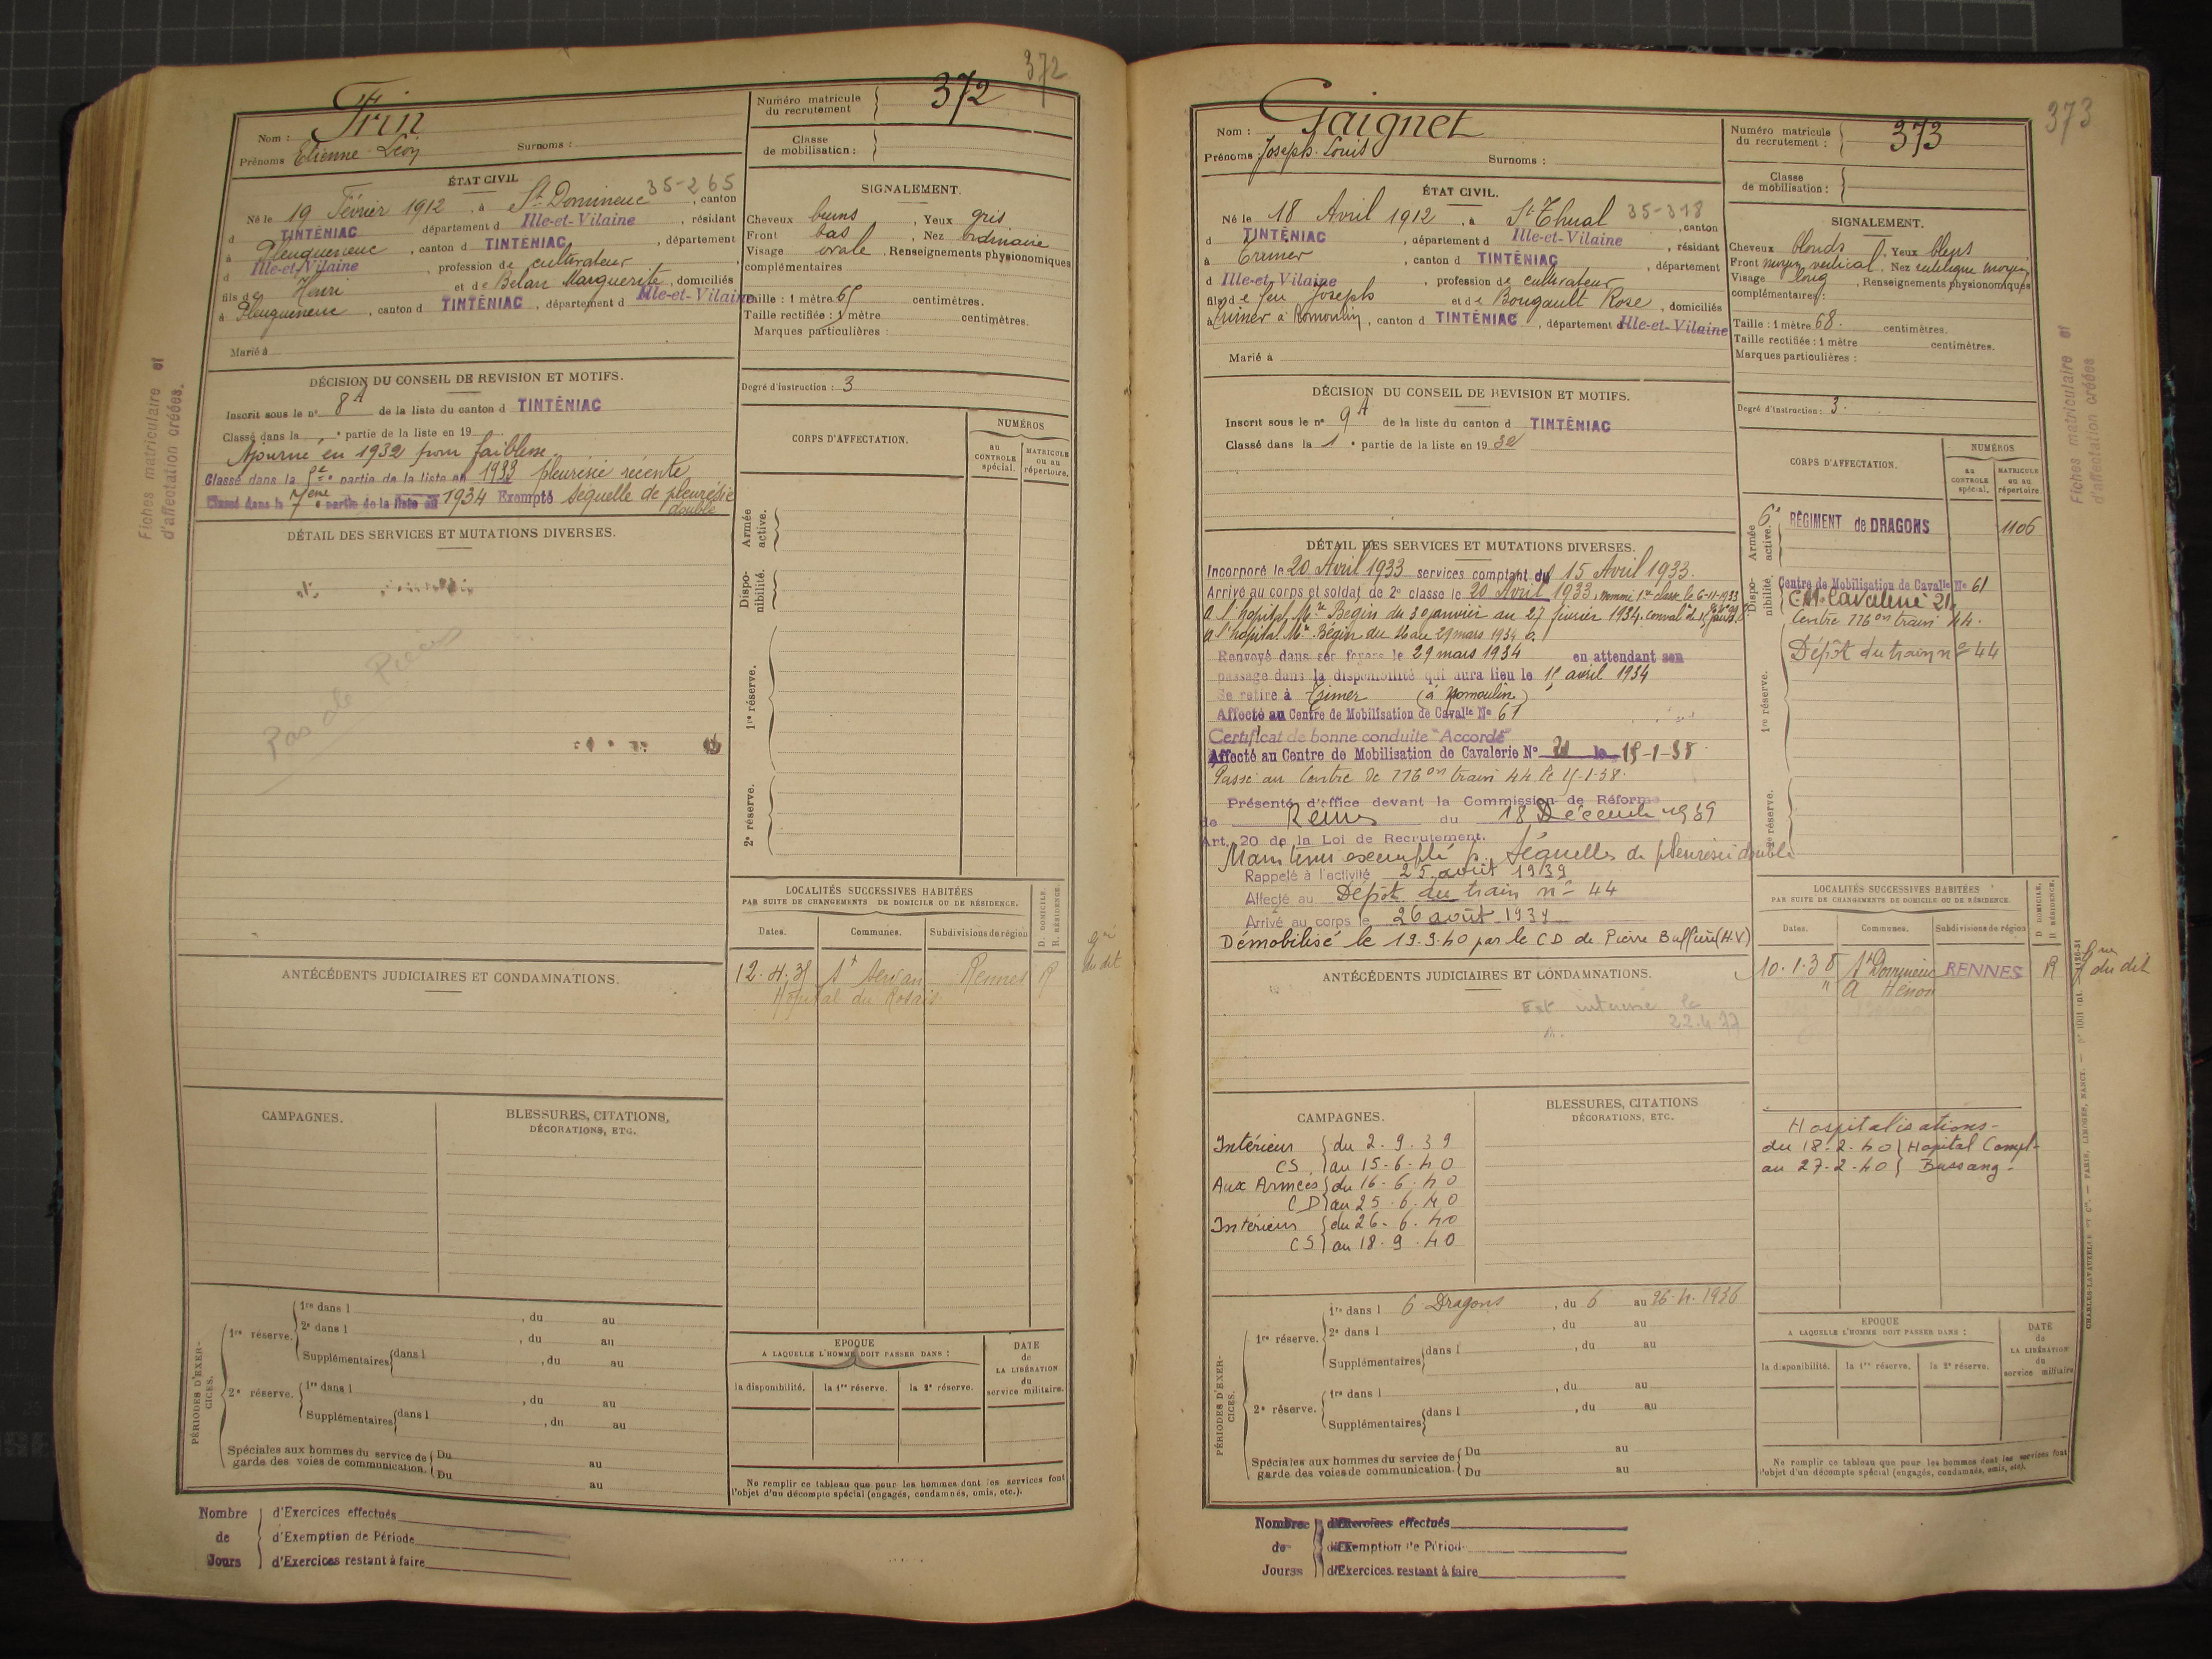 372
Numéro matricule
du recrutement
372
Nom : Frin
Prénoms Etienne Léon Surnoms :
Classe
de mobilisation :
ÉTAT CIVIL
35-265
Né le 19 Février 1912, à St Domineuc, canton
d TINTÉNIAC département d Ille-et-Vilaine, résidant
à Pleugueneuc, canton d TINTÉNIAC, département
d Ille-et-Vilaine, profession de cultivateur,
fils de Henri et de Belan Marguerite, domiciliés
à Pleugueneuc, canton d TINTÉNIAC, département d Ille-et-Vilaine
Marié à
SIGNALEMENT.
Cheveux bruns, Yeux gris
Front bas, Nez ordinaire
Visage ovale, Renseignements physionomiques
complémentaires
Taille : 1 mètre 65 centimètres.
Taille rectifiée : 1 mètre centimètres.
Marques particulières :
Degré d'instruction : 3
DÉCISION DU CONSEIL DE REVISION ET MOTIFS.
Inscrit sous le n° 8A de la liste du canton d TINTÉNIAC
Classé dans la e partie de la liste en 19
Ajourné en 1932 pour faiblesse.
Classé dans la partie de la liste en 1933 pleurésie récente
Classé dans la 7eme partie de la liste en 1934 Exempté séquelle de pleurésie
double
Fiches matriculaire et
d'affectation créées.
DÉTAIL DES SERVICES ET MUTATIONS DIVERSES.
Pas de
CORPS D'AFFECTATION.
NUMÉROS
au
CONTROLE
spécial.
MATRICULE
ou au
répertoire.
Armée
active.
Dispo-
nibilité.
1re réserve.
2e réserve.
LOCALITÉS SUCCESSIVES HABITÉES
PAR SUITE DE CHANGEMENTS DE DOMICILE OU DE RÉSIDENCE.
D. DOMICILE.
R. RÉSIDENCE.
Dates. Communes. Subdivisions de région
12. 4. 35 St Servan Rennes R
Hôpital du Rosais
du dit
ANTÉCÉDENTS JUDICIAIRES ET CONDAMNATIONS.
CAMPAGNES.
BLESSURES, CITATIONS,
DÉCORATIONS, ETC.
PÉRIODES D'EXER-
CICES.
1re réserve.
1re dans l , du au
2e dans l , du au
Supplémentaires dans l , du au
2e réserve.
1re dans l , du au
Supplémentaires dans l , du au
Spéciales aux hommes du service de
garde des voies de communication.
Du au
Du au
EPOQUE
A LAQUELLE L'HOMME DOIT PASSER DANS :
la disponibilité. la 1re réserve. la 2e réserve.
DATE
de
LA LIBÉRATION
du
service militaire.
Ne remplir ce tableau que pour les hommes dont les services font
l'objet d'un décompte spécial (engagés, condamnés, omis, etc.).
Nombre d'Exercices effectués
de d'Exemption de Période
Jours d'Exercices restant à faire
373
Numéro matricule
du recrutement :
373
Nom : Gaignet
Prénoms Joseph Louis Surnoms :
Classe
de mobilisation :
ÉTAT CIVIL.
Né le 18 Avril 1912, à St Thual 35-318, canton
d TINTÉNIAC, département d Ille-et-Vilaine, résidant
à Trimer, canton d TINTÉNIAC, département
d Ille-et-Vilaine, profession de cultivateur
fils de feu Joseph et de Bougault Rose, domiciliés
à Trimer à Romoulin, canton d TINTÉNIAC, département d Ille-et-Vilaine
Marié à
SIGNALEMENT.
Cheveux blonds, Yeux bleus,
Front moyen vertical, Nez rectiligne moyen
Visage long, Renseignements physionomiques
complémentaires :
Taille : 1 mètre 68. centimètres.
Taille rectifiée : 1 mètre centimètres.
Marques particulières :
Degré d'instruction : 3.
DÉCISION DU CONSEIL DE REVISION ET MOTIFS.
Inscrit sous le n° 9A de la liste du canton d TINTÉNIAC
Classé dans la 1e partie de la liste en 1932
Fiches matriculaire et
d'affectation créées
DÉTAIL DES SERVICES ET MUTATIONS DIVERSES.
Incorporé le 20 Avril 1933 services comptant du 15 Avril 1933.
Arrivé au corps et soldat de 2e classe le 20 Avril 1933, nommé 1re classe le 6-11-1933
A l'hopital Mre Bégin du 30 janvier au 27 février 1934. Conval
A l'hopital Mre Bégin du au 29 mars 1934
Renvoyé dans ses foyers le 29 mars 1934 en attendant son
passage dans la disponibilité qui aura lieu le 15 avril 1934
Se retire à Trimer (à Romoulin)
Affecté au Centre de Mobilisation de Cavalie No 61
Certificat de bonne conduite "Accordé"
Affecté au Centre de Mobilisation de Cavalerie No 21 le 15-1-38
Passé au Centre de Mbon train 44 le 15-1-38.
Présenté d'office devant la Commission de Réforme
de Rennes du 18 Décembre 1939
Art. 20 de la Loi de Recrutement.
Maintenu exempté p. séquelles de pleurésie double
Rappelé à l'activité 25 août 1939
Affecté au Dépôt du train n° 44
Arrivé au corps le 26 août 1939
Démobilisé le 19.9.40 par le CD de Pierre Buffière (H.V)
CORPS D'AFFECTATION.
NUMÉROS
au
CONTROLE
spécial.
MATRICULE
ou au
répertoire.
Armée
active.
6e RÉGIMENT de DRAGONS 1106
Dispo-
nibilité.
Centre de Mobilisation de Cavalie No 61
C.M. Cavalerie 21
Centre Mbon train 44.
1re réserve.
Dépôt du train n° 44
2e réserve.
LOCALITÉS SUCCESSIVES HABITÉES
PAR SUITE DE CHANGEMENTS DE DOMICILE OU DE RÉSIDENCE.
D. DOMICILE.
R. RÉSIDENCE.
Dates. Communes. Subdivisions de région
10.1.38 St Domineuc RENNES R
" à Hénon
du dit
ANTÉCÉDENTS JUDICIAIRES ET CONDAMNATIONS.
Est le
22.4.37
CAMPAGNES.
BLESSURES, CITATIONS
DÉCORATIONS, ETC.
Intérieur du 2.9.39
CS au 15-6-40
Aux Armées du 16-6-40
CD au 25.6.40
Intérieur du 26-6.40
CS au 18.9.40
Hospitalisations-
du 18.2.40 Hopital Compl-
au 27-2-40 Bussang-
PÉRIODES D'EXER-
CICES.
1re réserve.
1re dans l 6 Dragons, du 6 au 26.4.1936
2e dans l , du au
Supplémentaires dans l , du au
2e réserve.
1re dans l , du au
Supplémentaires dans l , du au
Spéciales aux hommes du service de
garde des voies de communication.
Du au
Du au
EPOQUE
A LAQUELLE L'HOMME DOIT PASSER DANS :
la disponibilité. la 1re réserve. la 2e réserve.
DATE
de
LA LIBÉRATION
du
service militaire
Ne remplir ce tableau que pour les hommes dont les services font
l'objet d'un décompte spécial (engagés, condamnés, omis, etc.).
CHARLES-LAVAUZELLE ET Cie. — PARIS, LIMOGES, NANCY.
Nombre d'Exercices effectués
de d'Exemption de Périod
Jours d'Exercices restant à faire